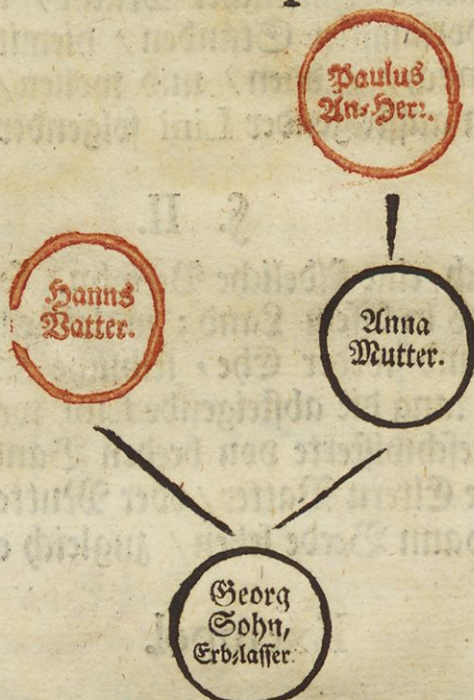 Paulus
An-Herꝛ.
Hanns
Vatter.
Anna
Mutter.
Georg
Sohn,
Erb-lasser.